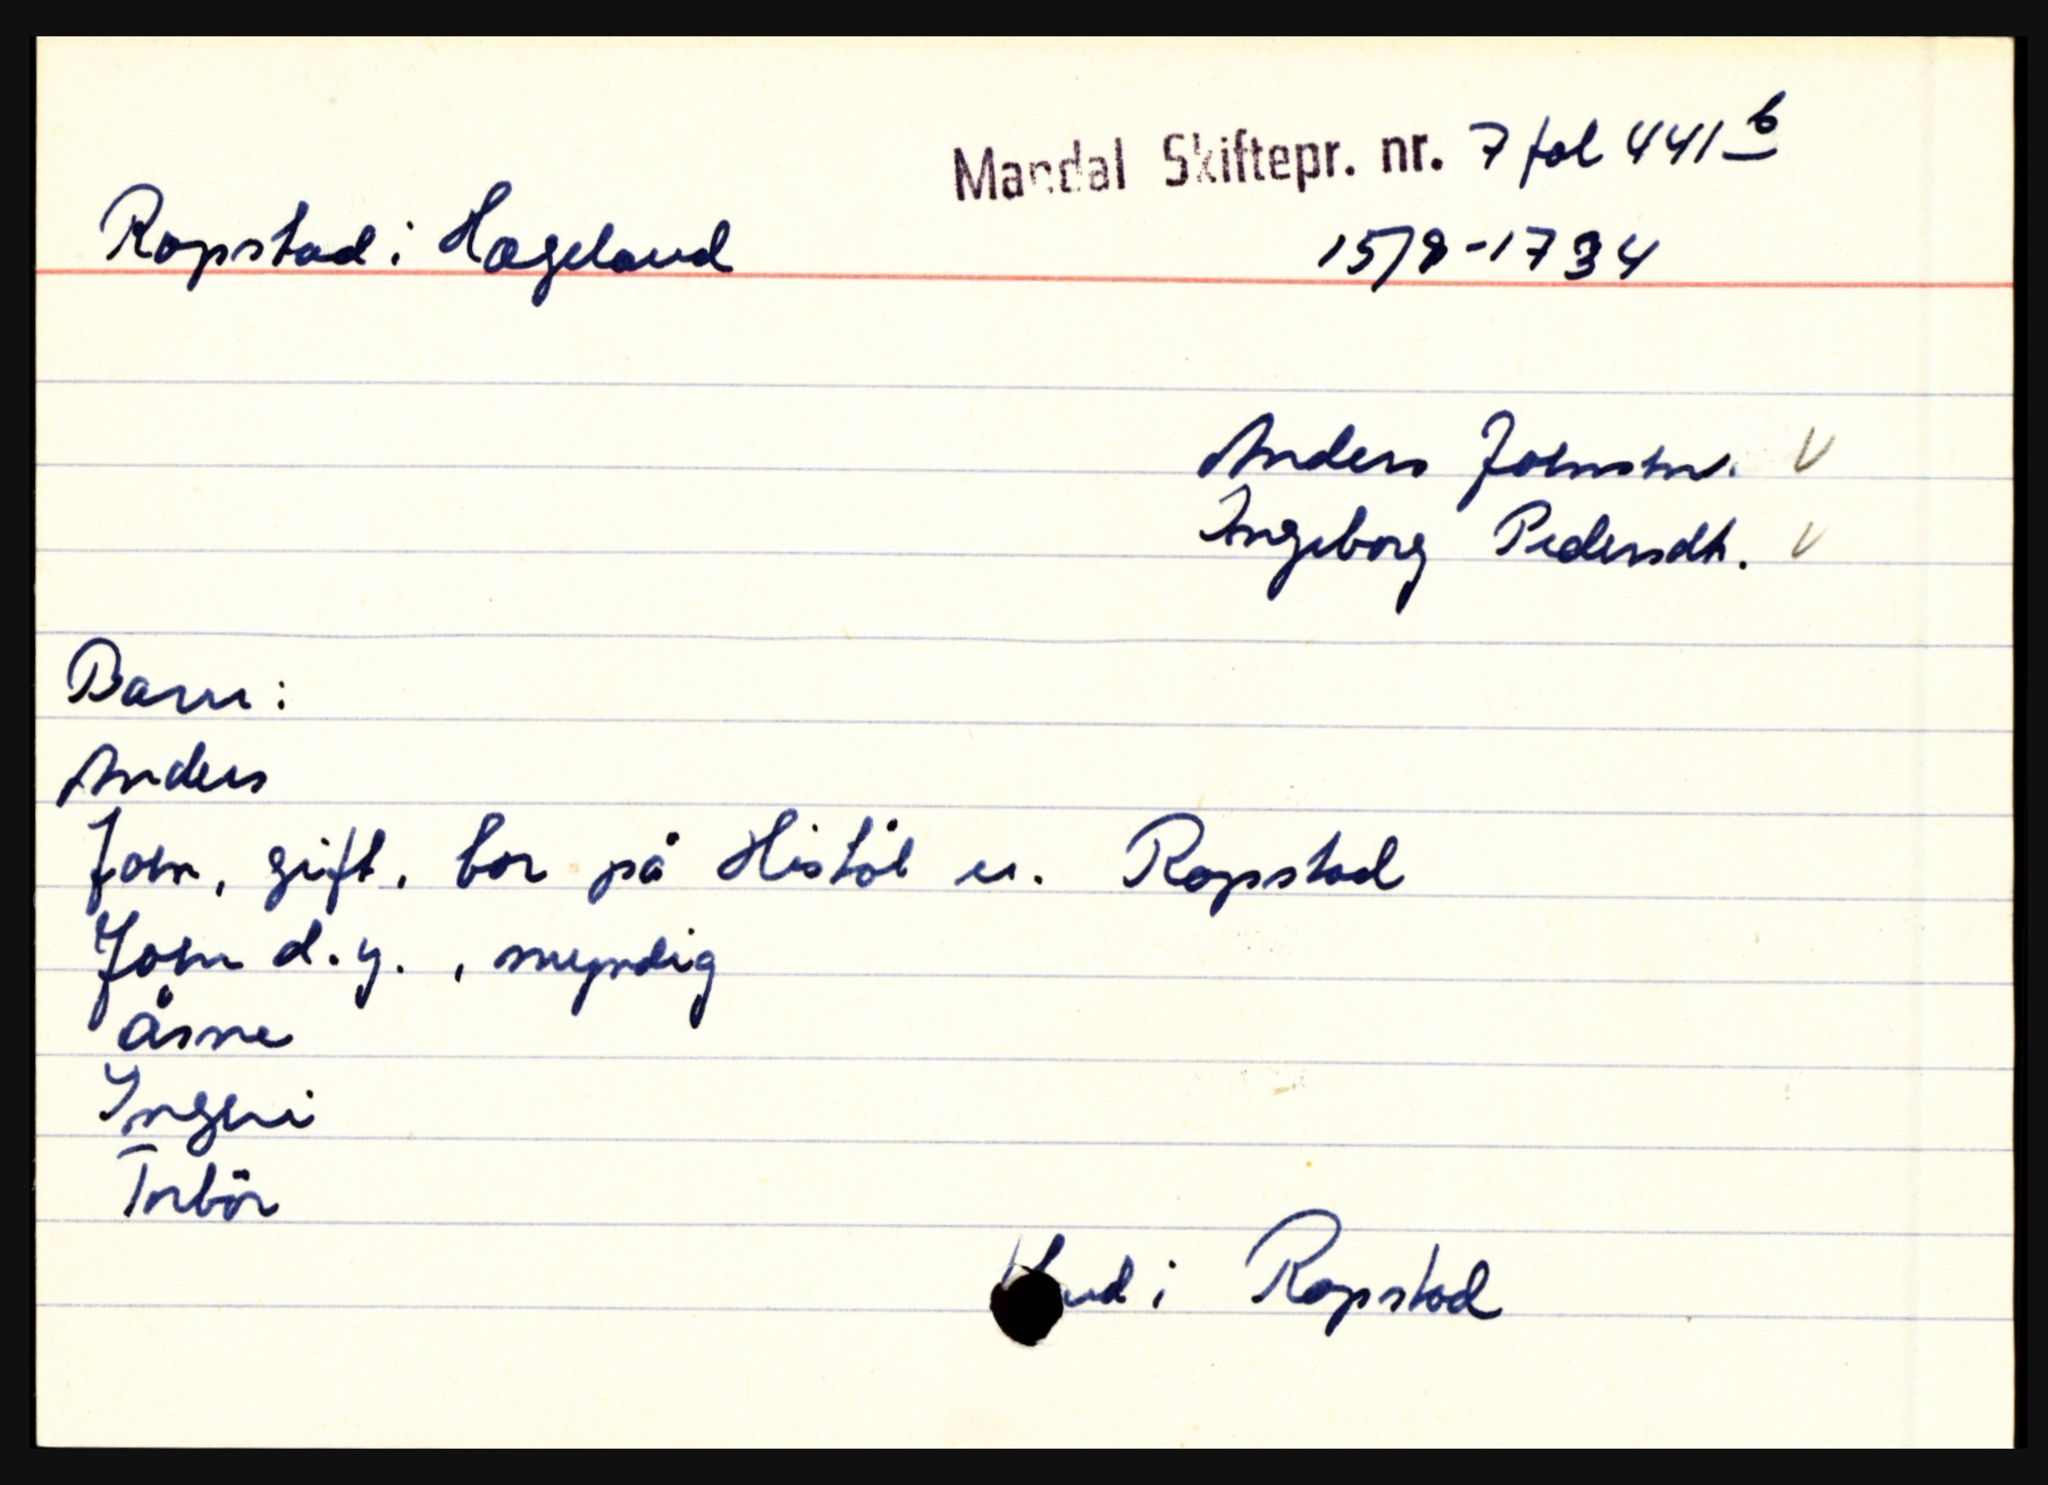 Mandal Skiftepr. nr. 7 fol 441 b
Ropstad i Hægeland 15/9-1734
Anders Johnsen. V
Ingeborg Pedersdt. V
Barn:
Anders
John, gift, bor på Histöl u. Ropstad
John d.y., myndig
Åsne
Ingeri
Torbör
i Ropstad